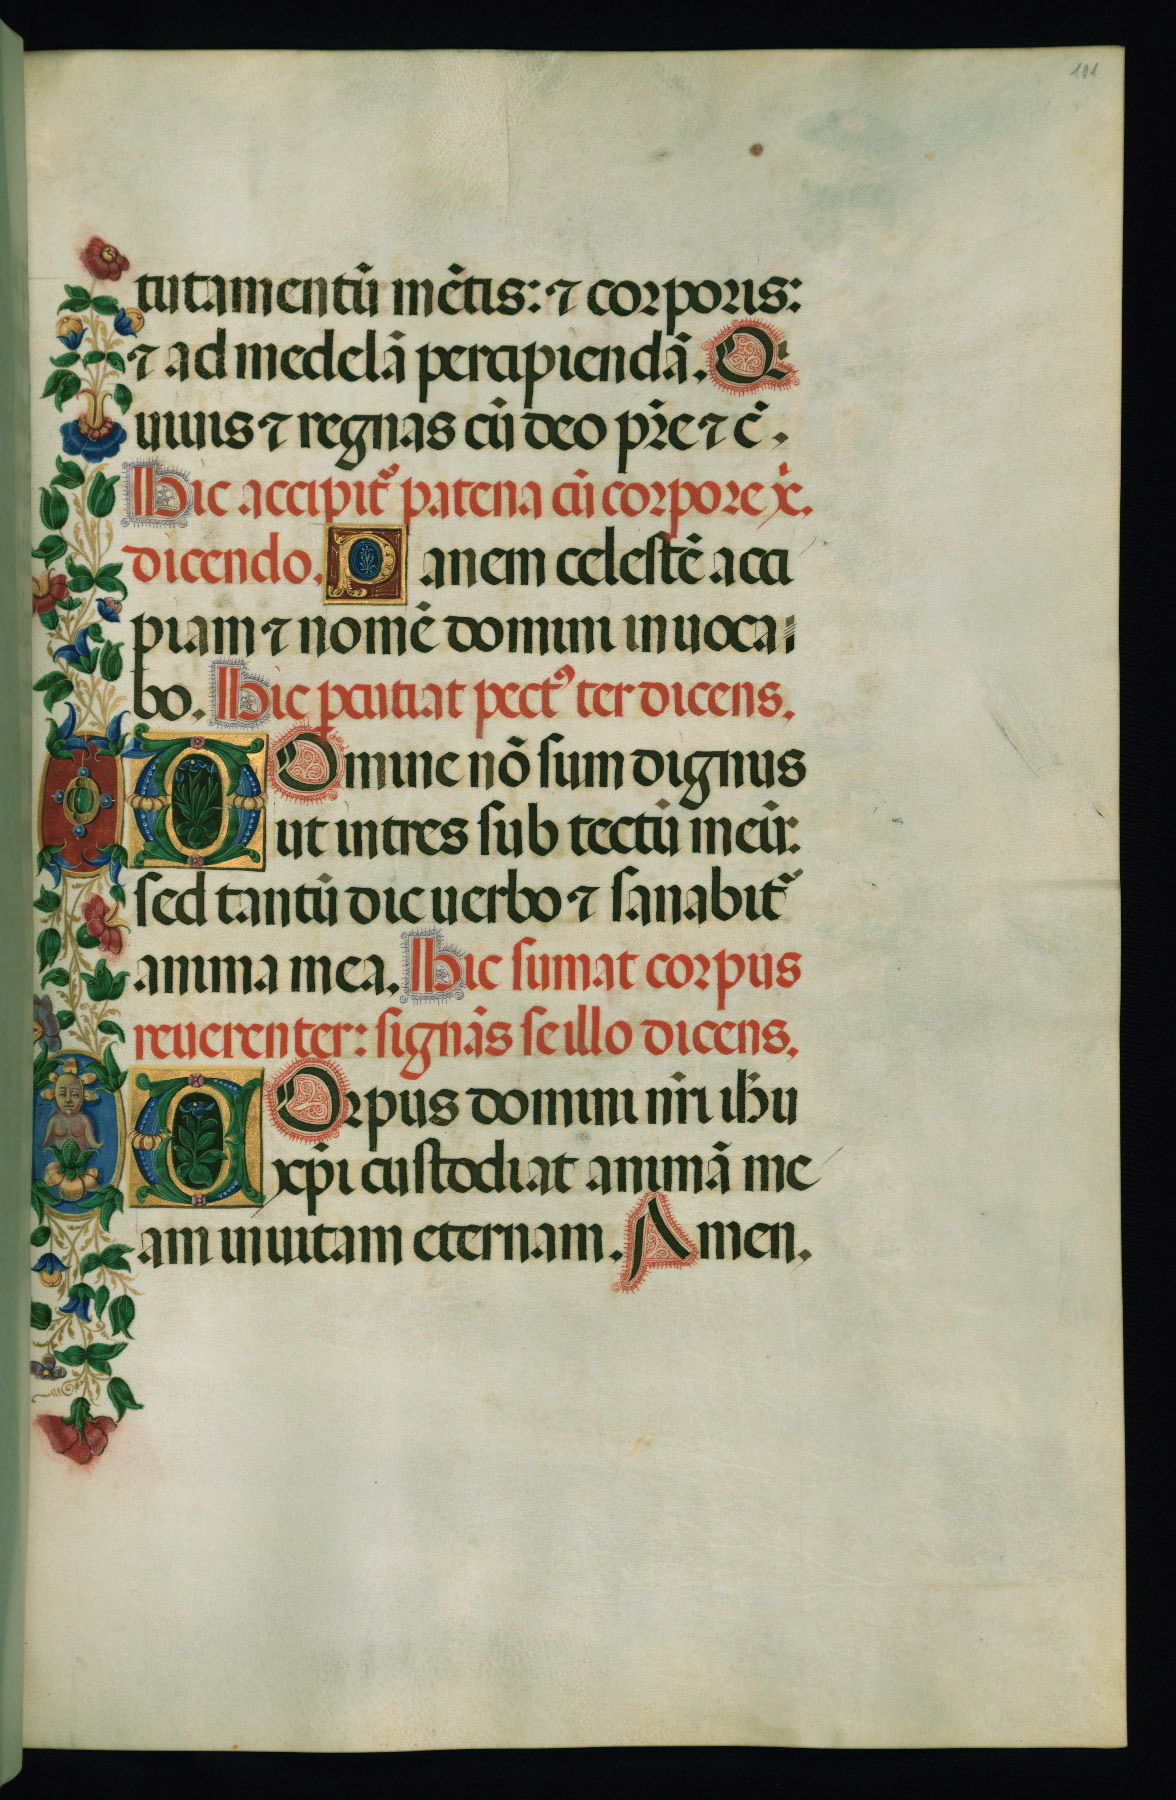 101
tutamentū mētis: ⁊ corporis:
⁊ ad medelā percipiendā. Q
uiuis ⁊ regnas cū deo pr̄e ⁊ c̄.
Hic accipit᷑ patena cū corpore x̄.
dicendo. Panem celestē acci
piam ⁊ nomē domini inuoca
bo. Hic ꝑcutiat pectꝰ ter dicens.
DOmine nō sum dignus
ut intres sub tectū meū:
sed tantū dic uerbo ⁊ sanabit᷑
anima mea. Hic sumat corpus
reuerenter: signās se illo dicens.
COrpus domini nr̄i ihū
xp̄i custodiat animā me
am in uitam eternam. Amen.